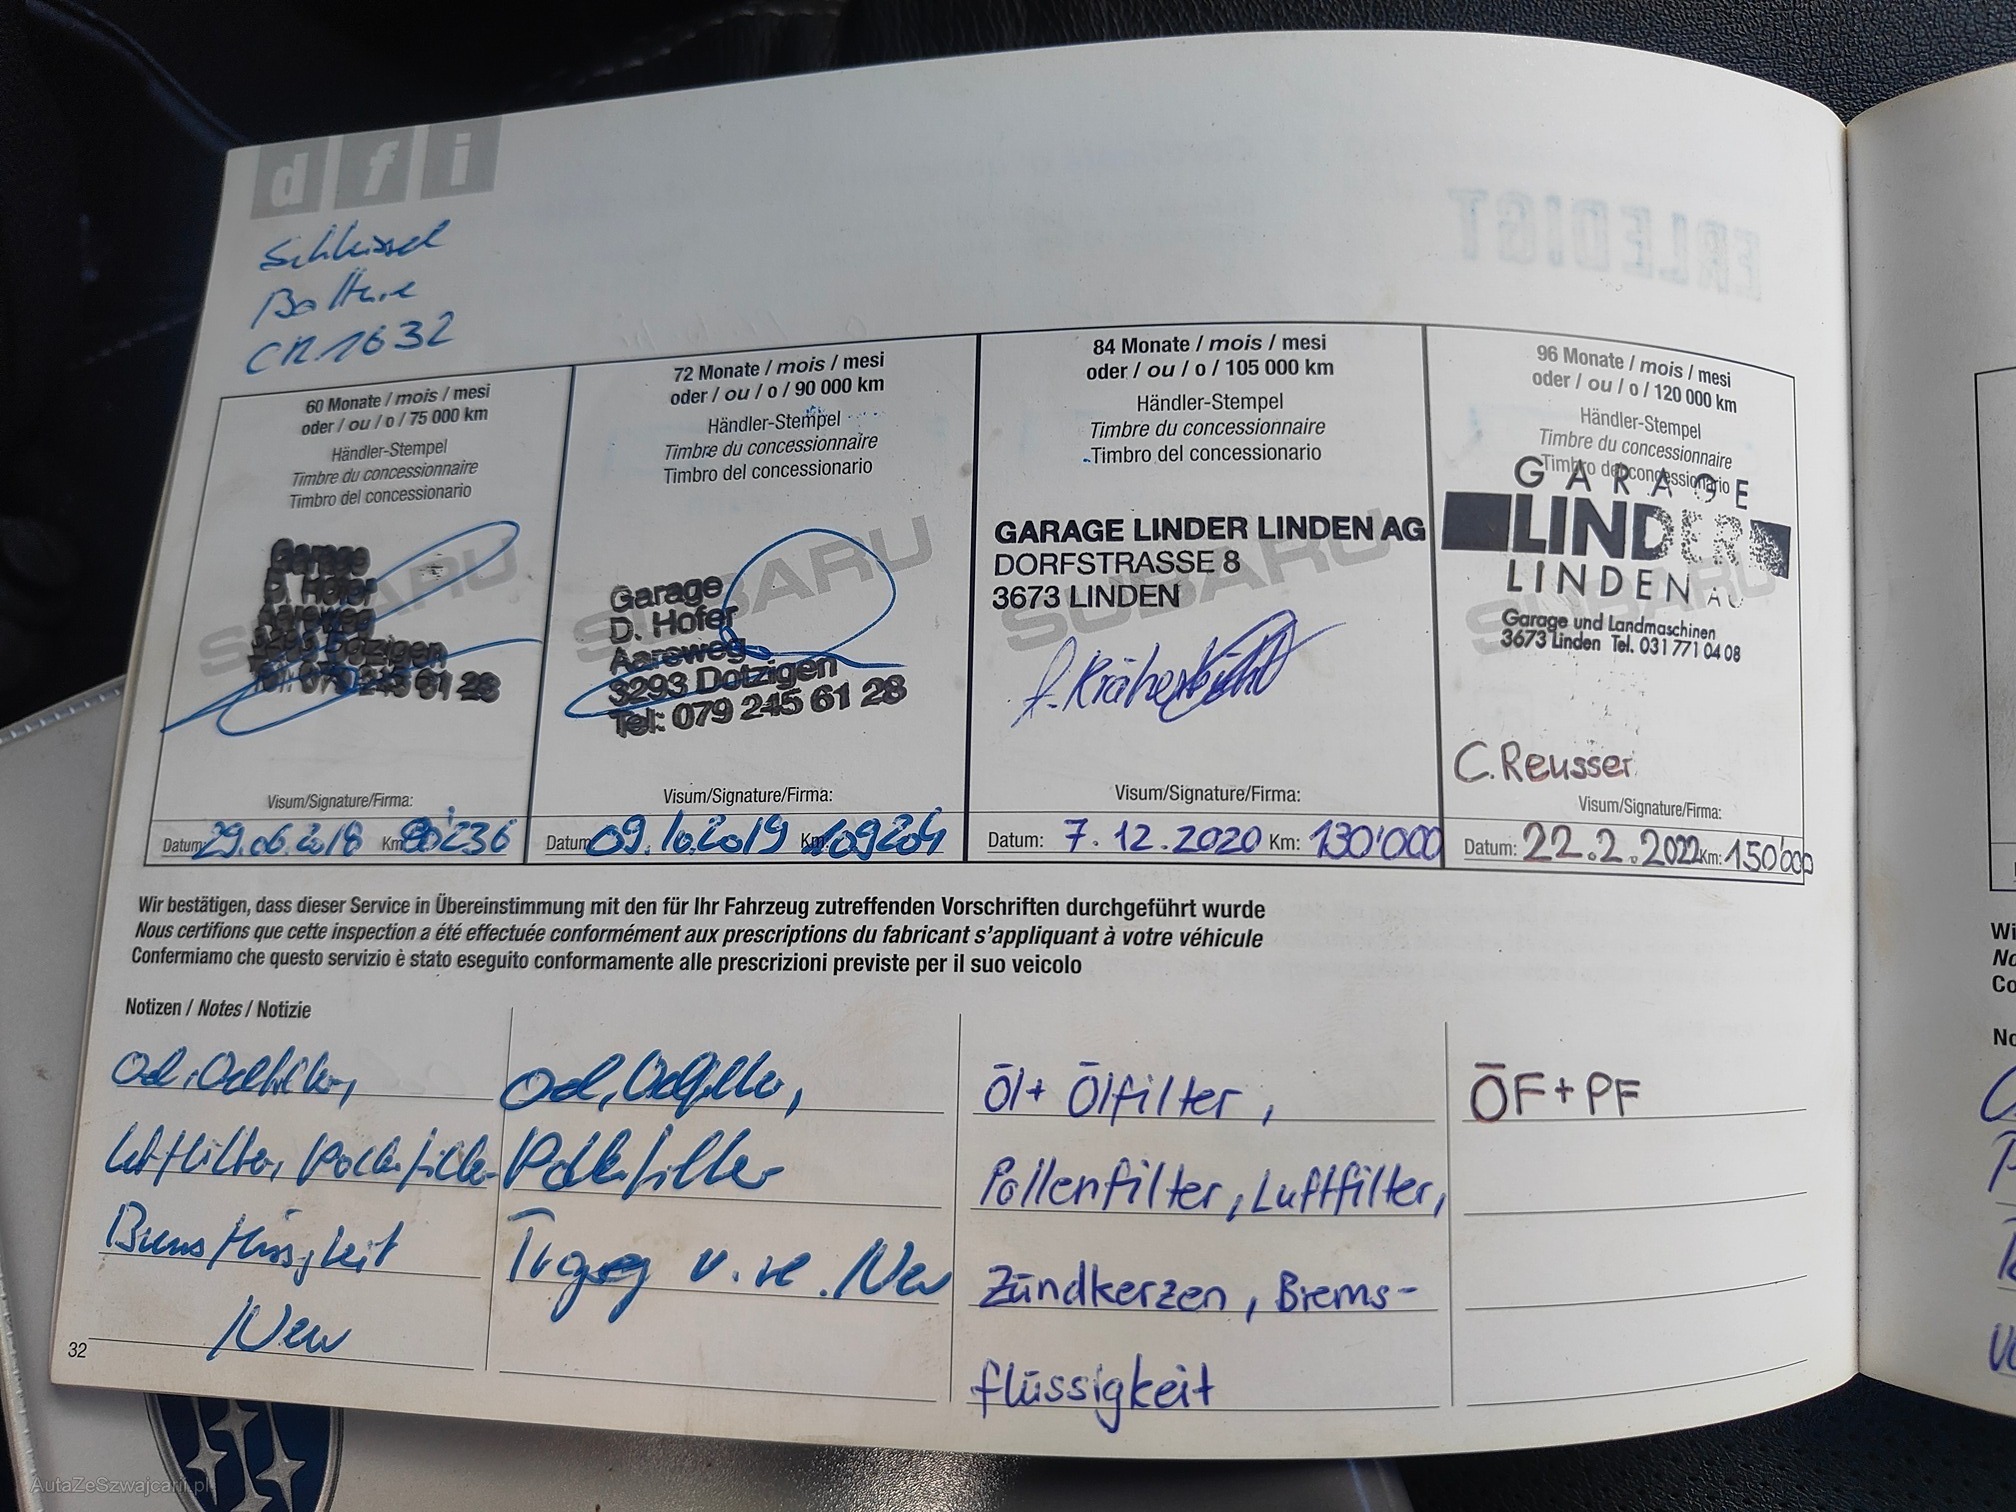 d f i
ERLEDIGT
Schlüssel
Batterie
CR1632
60 Monate / mois / mesi
oder / ou / o / 75 000 km
Händler-Stempel
Timbre du concessionnaire
Timbro del concessionario
SUBARU
Garage
D. Hofer
Aareweg
3293 Dotzigen
Tel: 079 245 61 28
Visum/Signature/Firma:
Datum: 29.06.2018 Km: 90'236
72 Monate / mois / mesi
oder / ou / o / 90 000 km
Händler-Stempel
Timbre du concessionnaire
Timbro del concessionario
SUBARU
Garage
D. Hofer
Aareweg
3293 Dotzigen
Tel: 079 245 61 28
Visum/Signature/Firma:
Datum: 09.10.2019 Km: 109204
84 Monate / mois / mesi
oder / ou / o / 105 000 km
Händler-Stempel
Timbre du concessionnaire
Timbro del concessionario
SUBARU
GARAGE LINDER LINDEN AG
DORFSTRASSE 8
3673 LINDEN
Visum/Signature/Firma:
Datum: 7.12.2020 Km: 130'000
96 Monate / mois / mesi
oder / ou / o / 120 000 km
Händler-Stempel
Timbre du concessionnaire
Timbro del concessionario
SUBARU
GARAGE
LINDER
LINDEN AG
Garage und Landmaschinen
3673 Linden Tel. 031 771 04 08
C. Reusser
Visum/Signature/Firma:
Datum: 22.2.2022 Km: 150'000
Wir bestätigen, dass dieser Service in Übereinstimmung mit den für Ihr Fahrzeug zutreffenden Vorschriften durchgeführt wurde
Nous certifions que cette inspection a été effectuée conformément aux prescriptions du fabricant s'appliquant à votre véhicule
Confermiamo che questo servizio è stato eseguito conformamente alle prescrizioni previste per il suo veicolo
Notizen / Notes / Notizie
Oel, Oelfilter,
Luftfilter, Pollenfilter
Bremsflüssigkeit
Neu
Oel, Oelfilter,
Pollenfilter
v. re. Neu
Öl + Ölfilter,
Pollenfilter, Luftfilter,
Zündkerzen, Brems-
flüssigkeit
ÖF + PF
32
Wi
No
Co
No
AutaZeSzwajcarii.pl